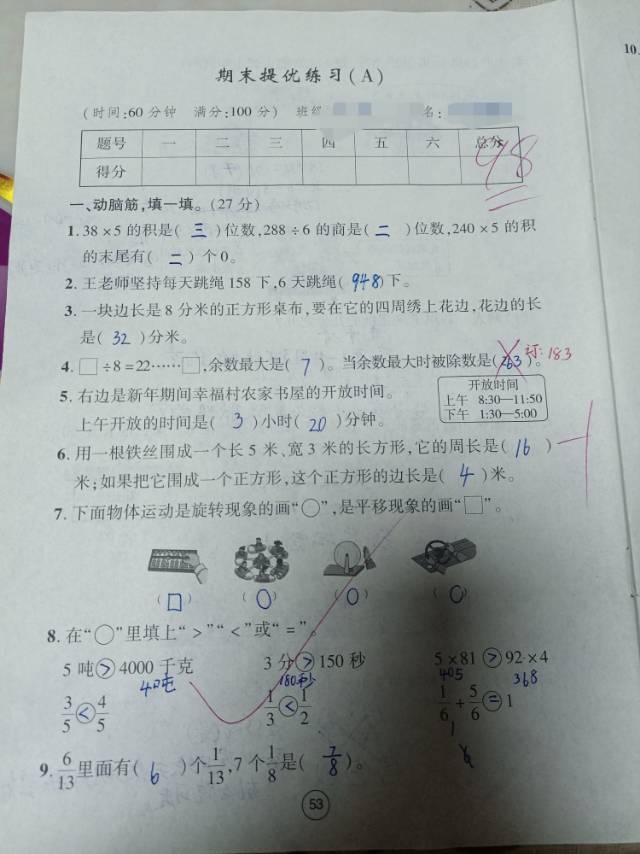 10.
期末提优练习(A)
(时间:60分钟 满分:100分) 班级 名:
题号 一 二 三 四 五 六 总分
得分 98
一、动脑筋,填一填。(27分)
1. 38×5的积是( 三 )位数,288÷6的商是( 二 )位数,240×5的积
的末尾有( 二 )个0。
2. 王老师坚持每天跳绳158下,6天跳绳( 948 )下。
3. 一块边长是8分米的正方形桌布,要在它的四周绣上花边,花边的长
是( 32 )分米。
4. □÷8=22……□,余数最大是( 7 )。当余数最大时被除数是( 263 )。 订:183
5. 右边是新年期间幸福村农家书屋的开放时间。
上午开放的时间是( 3 )小时( 20 )分钟。
开放时间
上午 8:30—11:50
下午 1:30—5:00
6. 用一根铁丝围成一个长5米、宽3米的长方形,它的周长是( 16 )
米;如果把它围成一个正方形,这个正方形的边长是( 4 )米。
-1
7. 下面物体运动是旋转现象的画“○”,是平移现象的画“□”。
( □ ) ( ○ ) ( ○ ) ( ○ )
8. 在“○”里填上“>”“<”或“=”。
5吨>4000千克 3分>150秒 5×81>92×4
40吨 180秒 405 368
3/5<4/5 1/3<1/2 1/6+5/6=1
1
9. 6/13里面有( 6 )个1/13,7个1/8是( 7/8 )。
53